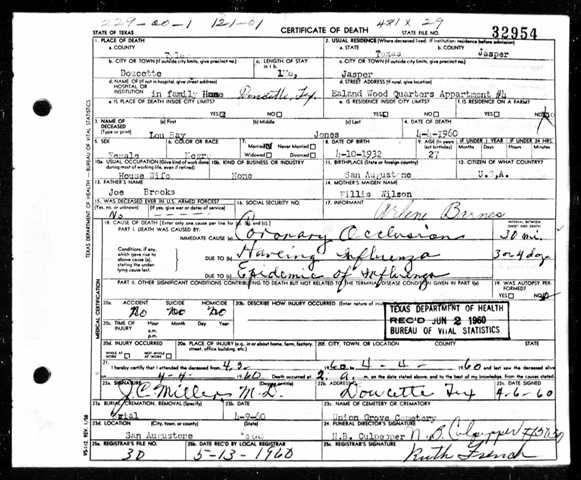 229-00-1 121-01 481 x 29
STATE OF TEXAS CERTIFICATE OF DEATH STATE FILE NO. 32954
1. PLACE OF DEATH 2. USUAL RESIDENCE (Where deceased lived. If institution: residence before admission)
a. COUNTY a. STATE b. COUNTY
Texas Jasper
b. CITY OR TOWN (If outside city limits, give precinct no.) c. LENGTH OF STAY c. CITY OR TOWN (If outside city limits, give precinct no.)
Doucette Jasper
d. NAME OF (If not in hospital, give street address) HOSPITAL OR INSTITUTION d. STREET ADDRESS (If rural, give location)
in family Home Doucette, Tex. Ealand Wood Quarters Appartment #4
e. IS PLACE OF DEATH INSIDE CITY LIMITS? YES NO e. IS RESIDENCE INSIDE CITY LIMITS? YES NO f. IS RESIDENCE ON A FARM? YES NO
3. NAME OF DECEASED (Type or print) (a) First (b) Middle (c) Last 4. DATE OF DEATH
Lou Ray Jones 4-4-1960
5. SEX 6. COLOR OR RACE 7. Married Never Married Widowed Divorced 8. DATE OF BIRTH 9. AGE (In years last birthday) IF UNDER 1 YEAR IF UNDER 24 HRS.
Female Negro 4-10-1932 27
10a. USUAL OCCUPATION (Give kind of work done during most of working life, even if retired) 10b. KIND OF BUSINESS OR INDUSTRY 11. BIRTHPLACE (State or foreign country) 12. CITIZEN OF WHAT COUNTRY?
House Wife None San Augustine U.S.A.
13. FATHER'S NAME 14. MOTHER'S MAIDEN NAME
Joe Brooks Wilson
15. WAS DECEASED EVER IN U.S. ARMED FORCES? 16. SOCIAL SECURITY NO. 17. INFORMANT
(Yes, no, or unknown) (If yes, give war or dates of service)
No Arlene Barnes
18. CAUSE OF DEATH (Enter only one cause per line for INTERVAL BETWEEN ONSET AND DEATH
PART I. DEATH WAS CAUSED BY:
IMMEDIATE CAUSE (a) Coronary Occlusion 30 mi.
Conditions, if any, which gave rise to above cause (a), stating the underlying cause last.
DUE TO (b) Haveing Influenza 3 or 4 days
DUE TO (c) Epidemic of Influenza
PART II. OTHER SIGNIFICANT CONDITIONS CONTRIBUTING TO DEATH BUT NOT RELATED TO THE TERMINAL DISEASE CONDITION GIVEN IN PART I(a) 19. WAS AUTOPSY PERFORMED? YES NO
20a. ACCIDENT SUICIDE HOMICIDE 20b. DESCRIBE HOW INJURY OCCURRED. (Enter nature of
No No No
TEXAS DEPARTMENT OF HEALTH
REC'D JUN 2 1960
BUREAU OF VITAL STATISTICS
20c. TIME OF INJURY Hour Month Day Year
20d. INJURY OCCURRED WHILE AT WORK NOT WHILE AT WORK 20e. PLACE OF INJURY (e.g., in or about home, farm, factory, street, office building, etc.) 20f. CITY, TOWN, OR LOCATION COUNTY STATE
21. I hereby certify that I attended the deceased from 4-3- 1960, 4-4- 1960 and last saw the deceased alive
4-4- 1960 Death occurred at 2 a. m. on the date stated above, and to the best of my knowledge, from the causes stated.
22a. SIGNATURE 22b. ADDRESS 22c. DATE SIGNED
J.C. Miller M.D. Doucette Tex 4-6-60
23a. BURIAL, CREMATION, REMOVAL (Specify) 23b. DATE 23c. NAME OF CEMETERY OR CREMATORY
4-7-60 Union Grove Cemetery
23d. LOCATION 24. FUNERAL DIRECTOR'S SIGNATURE
San Augustone H.B. Culpepper N. B. Culpepper
25a. REGISTRAR'S FILE NO. 25b. DATE REC'D BY LOCAL REGISTRAR 25c. REGISTRAR'S SIGNATURE
30 5-13-1960 Ruth French
TEXAS DEPARTMENT OF HEALTH - BUREAU OF VITAL STATISTICS
MEDICAL CERTIFICATION
VS-112 REV. 1/58